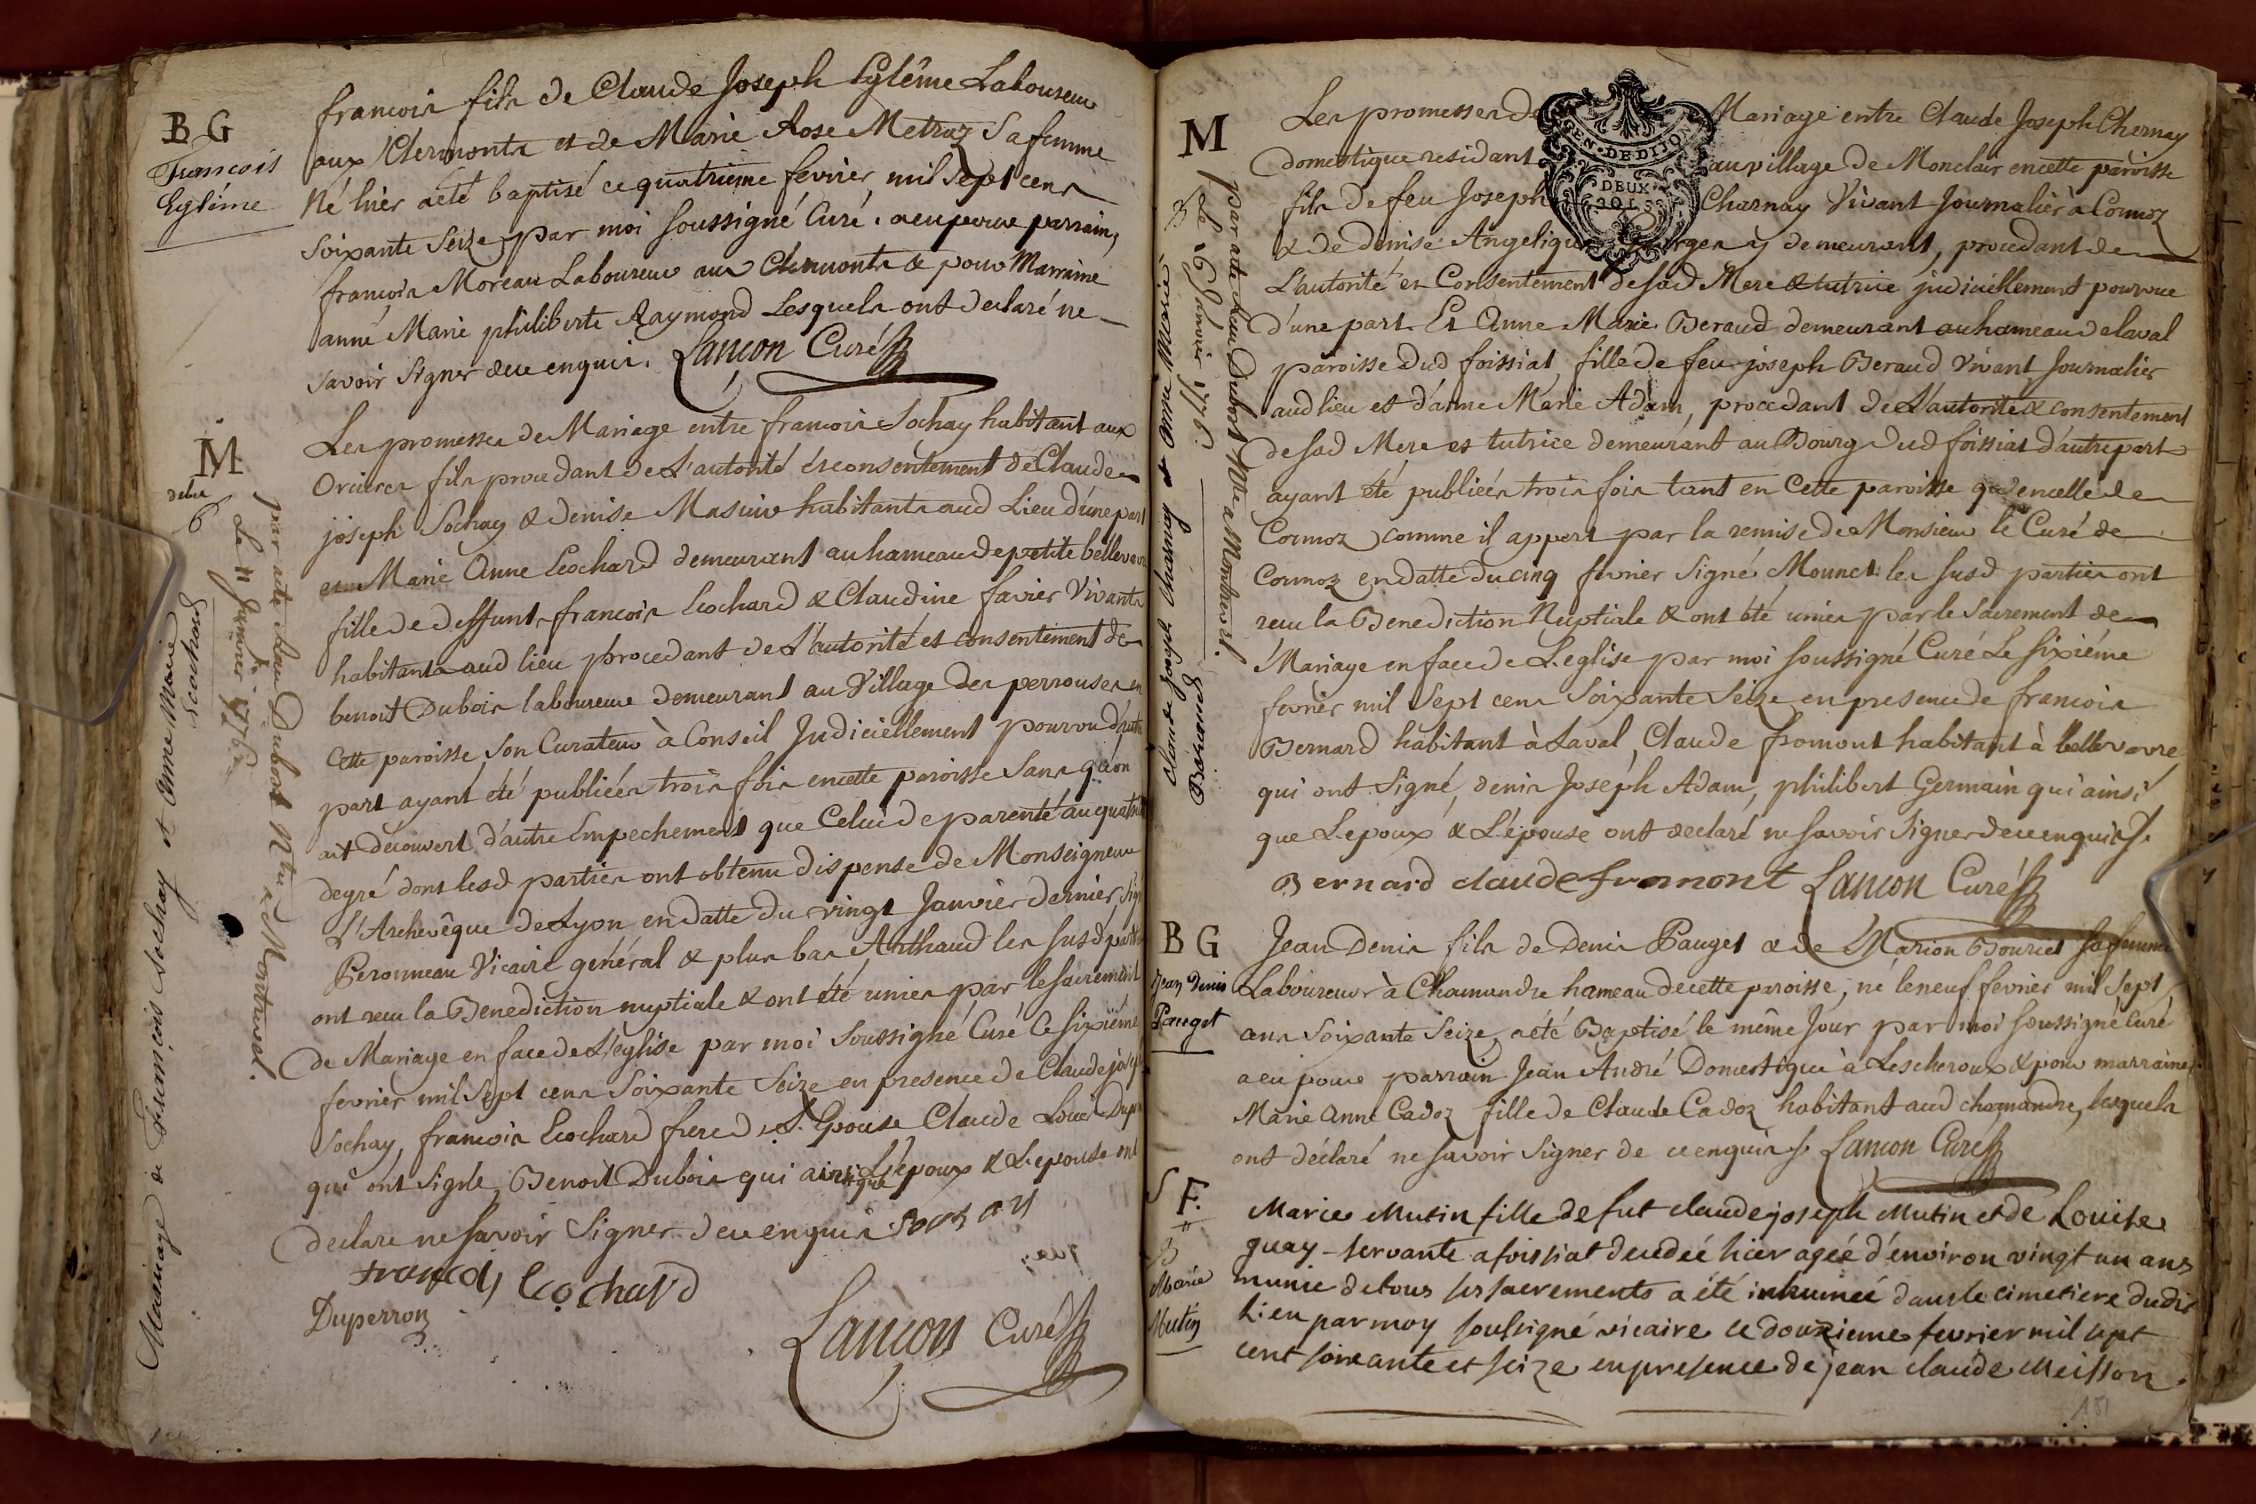 B G
François
Eglême
francois fils de Claude Joseph Eglême Laboureur
aux Clermonts et de Marie Rose Metraz Sa femme
Né hier a été baptisé ce quatrieme fevrier mil sept cens
soixante Seize par moi soussigné Curé. a eu pour parrain,
francois Moreau Laboureur aux Clermonts & pour Marraine
anne Marie philiberte Raymond Lesquels ont declaré ne
savoir signer de ce enquis. Lançon Curé
M
du
6
Mariage de François Sochay et Anne Marie
Ecochard
par acte Dubost Nre a Montrevel.
Le 11 Janvier 1776
Les promesses de Mariage entre francois Sochay habitant aux
Orcieres fils procedant de L'autorité et consentement de Claude
joseph Sochay & Denise Masuir habitants aud Lieu d'une part
et Marie Anne Ecochard demeurant au hameau de petite bellevavre
fille de deffunts francois Ecochard & Claudine favier Vivants
habitants aud lieu procedant de L'autorité et consentement de
benoit Dubois laboureur demeurant au Village des perrouses en
Cette paroisse son Curateur à Conseil Judiciellement pourvu d'autre
part ayant été publiées trois fois en cette paroisse sans qu'on
ait decouvert d'autre Empechement que Celui de parenté au quatrieme
degré dont lesd parties ont obtenu dispense de Monseigneur
L'Archevêque de Lyon en datte du vingt Janvier dernier, signé
Peronneau Vicaire général & plus bas Arthaud les susd parties
ont recu la Benediction nuptiale & ont été unies par le sacrement
de Mariage en face de L'eglise par moi soussigné Curé Ce sixieme
fevrier mil sept cens soixante Seize en presence de Claude joseph
Sochay, francois Ecochard frere de L'Epouse Claude Louis Duperron
qui ont signé, Benoit Dubois qui ainsi que L'époux & L'epouse ont
declaré ne savoir signer de ce enquis Sochay
françois Ecochard
Duperron
Lançon Curé
M
Le 16 Janvier 1776.
par acte Dubost Nre a Montrevel.
Claude Joseph Charnay et Anne Marie
Beraud
GEN. DE DIJON
DEUX
SOLS
Les promesses de Mariage entre Claude Joseph Chernay
domestique residant au village de Monclair en cette paroisse
fils de feu Joseph Charnay Vivant Journalier à Cormoz
& de denise Angelique y demeurant, procedant de
L'autorité et Consentement de sad Mere & tutrice judiciellement pourvue
d'une part. Et Anne Marie Beraud demeurant au hameau de laval
paroisse dud foissiat, fille de feu joseph Beraud Vivant Journalier
aud lieu et d'anne Marie Adam, procedant de L'autorité & consentement
de sad Mere et tutrice demeurant au Bourg dud foissiat d'autre part
ayant été publiées trois fois tant en Cette paroisse qu'en celle de
Cormoz comme il appert par la remise de Monsieur le Curé de
Cormoz en datte du cinq fevrier Signé Mounet: les susd parties ont
recu la Benediction Nuptiale & ont été unies par le sacrement de
Mariage en face de L'eglise par moi soussigné Curé Le sixiéme
fevrier mil sept cens soixante Seize en presence de francois
Bernard habitant à Laval, Claude fromont habitant à bellevavre
qui ont signé, denis Joseph Adam, philibert Germain qui ainsi
que L'epoux & L'épouse ont declaré ne savoir signer de ce enquis.
Bernard claude fromont Lançon Curé
B G
Jean Denis
Pauget
Jean Denis fils de Denis Pauget & de Marion Bourcet sa femme
Laboureur à Chamandre hameau de cette paroisse, né le neuf fevrier mil sept
cens soixante Seize, a été Baptisé le même Jour par moi soussigné Curé
a eu pour parrain Jean André Domestique à Lescheroux & pour marraine
Marie Anne Cadoz fille de Claude Cadoz habitant aud chamandre, lesquels
ont déclaré ne savoir signer de ce enquis Lançon Curé
S F.
Marie
Mutin
Marie Mutin fille de fut claude joseph Mutin et de Louise
guay servante a foissiat decedeé hier ageé d'environ vingt un ans
munie de tous ses sacrements a été inhumée dans le cimetiere dudit
Lieu par moy soussigné vicaire ce douzieme fevrier mil sept
cent soixante et seize en presence de jean claude Meisson
181